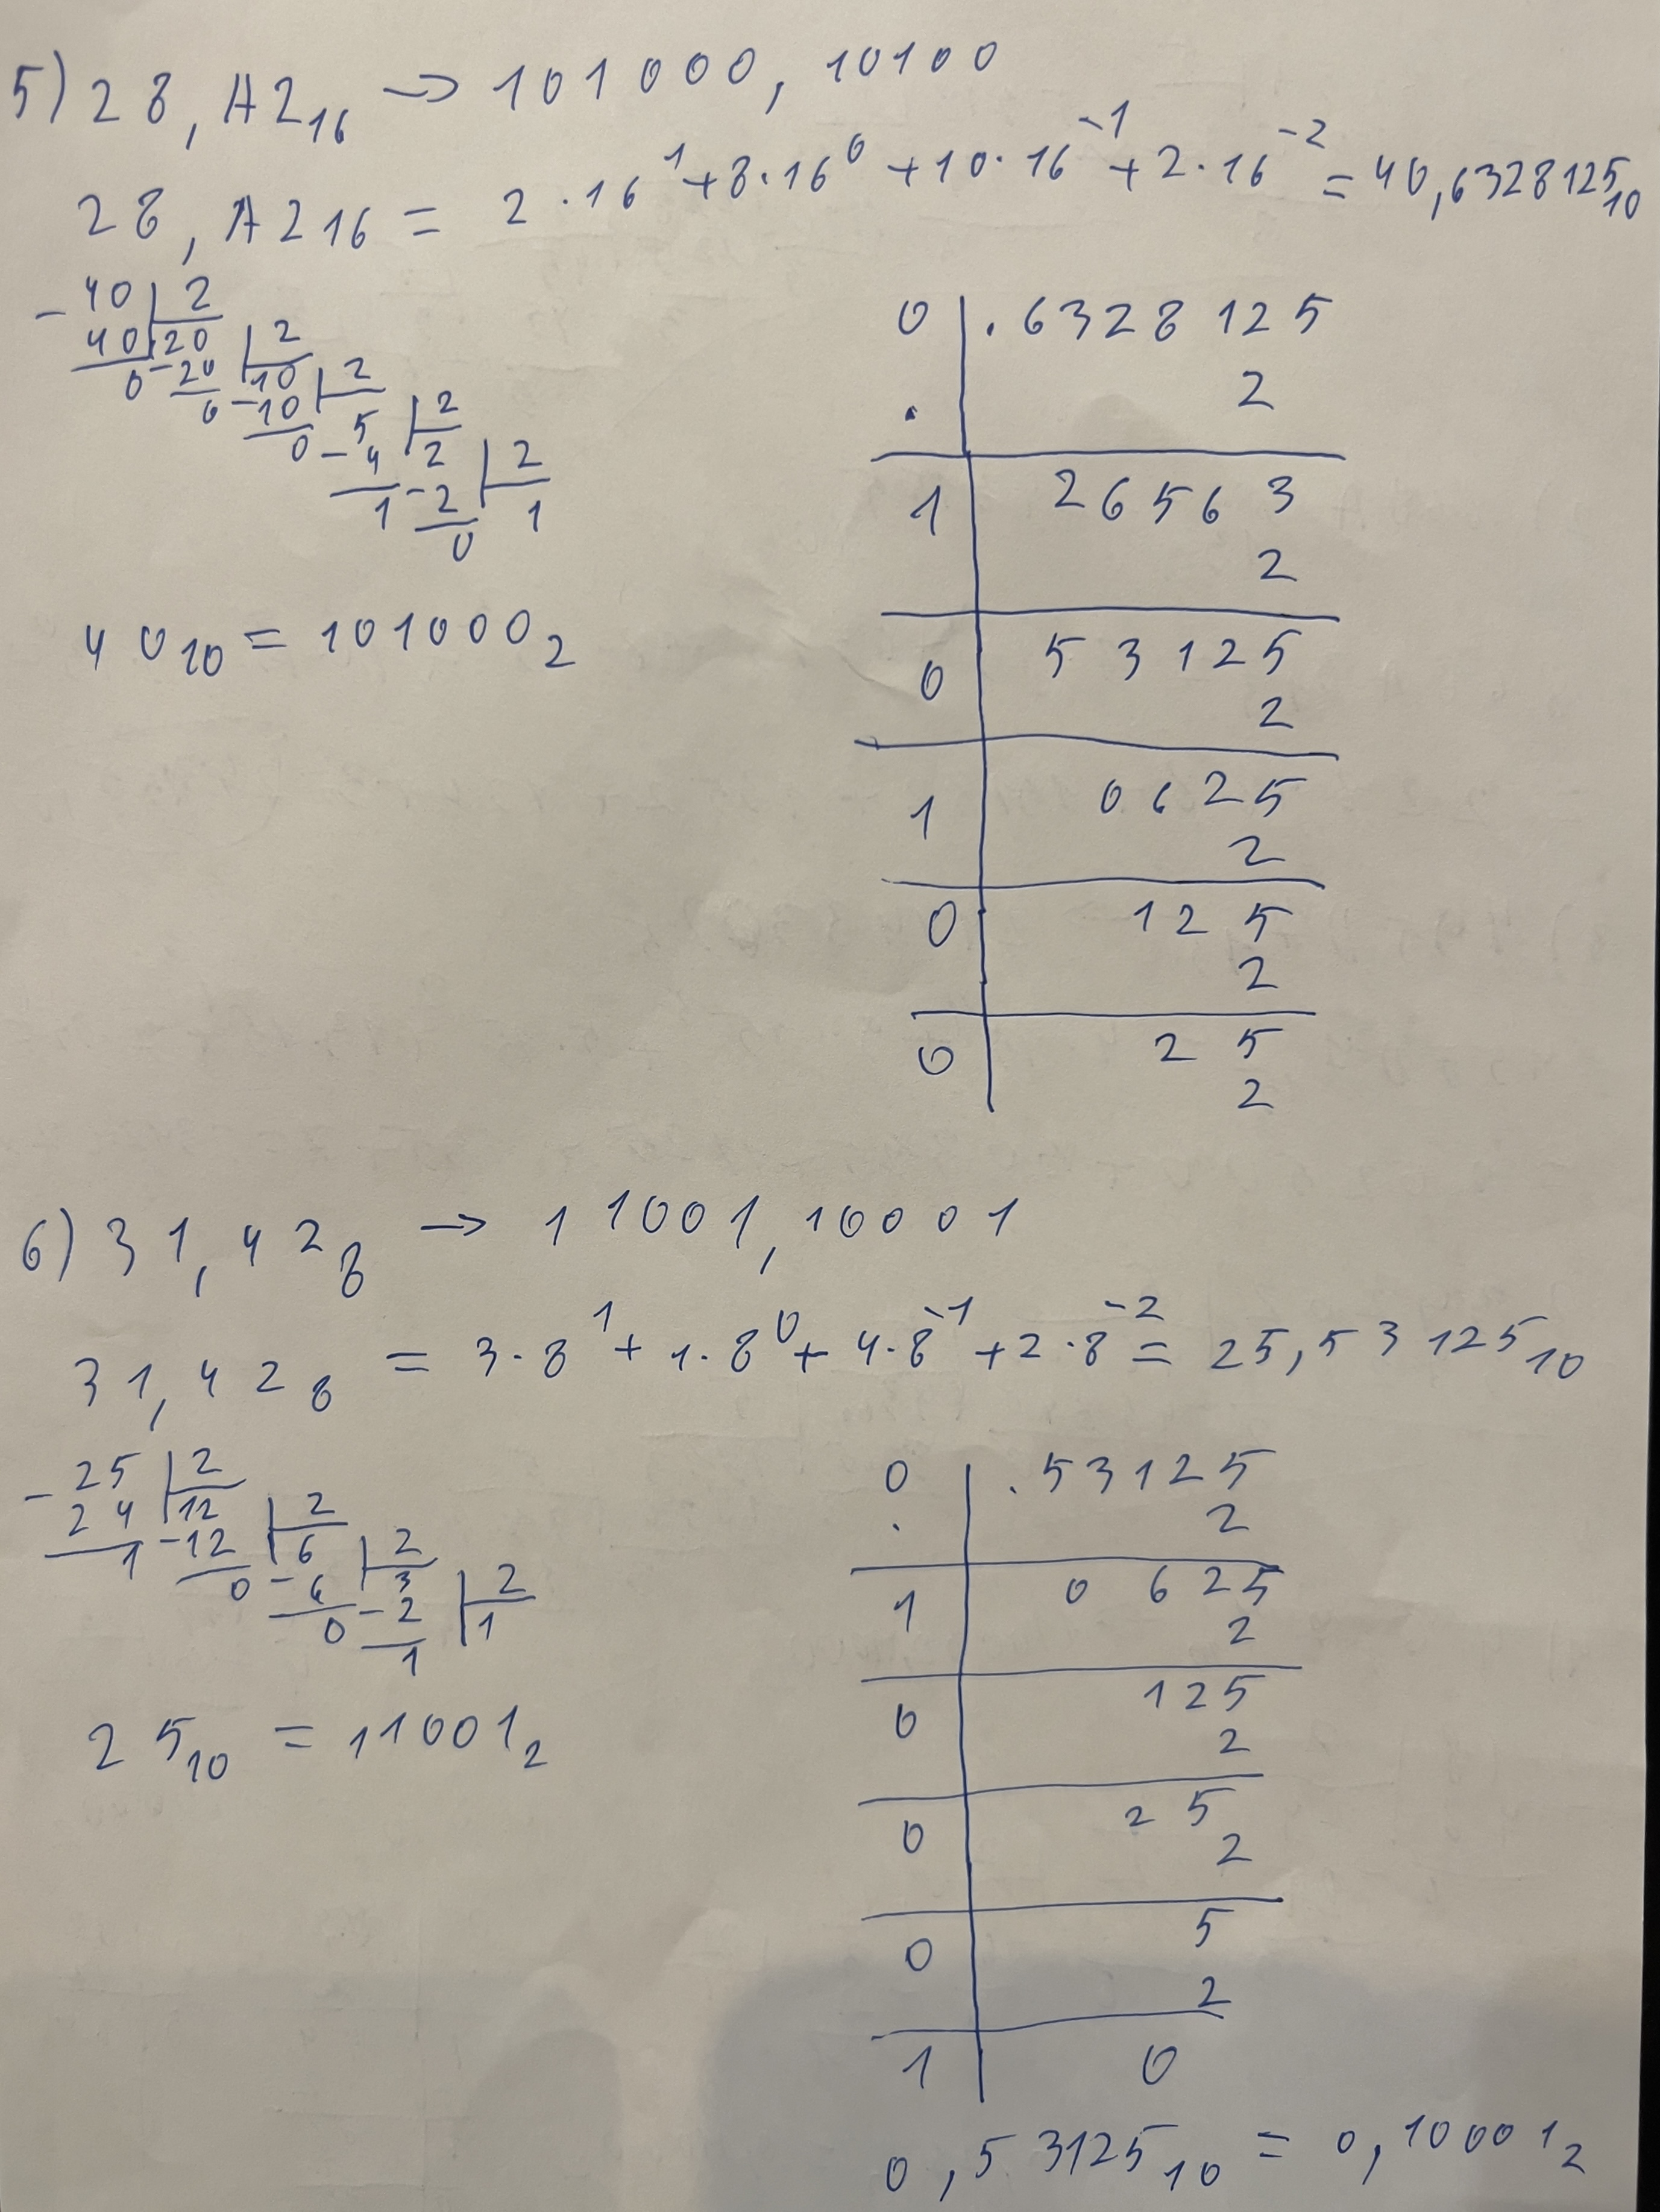 5) 28,A2₁₆ → 101000,10100
28,A2₁₆ = 2·16¹+8·16⁰+10·16⁻¹+2·16⁻² = 40,6328125₁₀
- 40 | 2
40 | 20 | 2
0 - 20 | 10 | 2
0 - 10 | 5 | 2
0 - 4 | 2 | 2
1 - 2 | 1
0
40₁₀ = 101000₂
0 | .6328125
. | 2
1 | 26563
2
0 | 53125
2
1 | 0625
2
0 | 125
2
0 | 25
2
6) 31,42₈ → 11001,10001
31,42₈ = 3·8¹+1·8⁰+4·8⁻¹+2·8⁻² = 25,53125₁₀
- 25 | 2
24 | 12 | 2
1 - 12 | 6 | 2
0 - 6 | 3 | 2
0 - 2 | 1
1
25₁₀ = 11001₂
0 | .53125
. | 2
1 | 0625
2
0 | 125
2
0 | 25
2
0 | 5
2
1 | 0
0,53125₁₀ = 0,10001₂